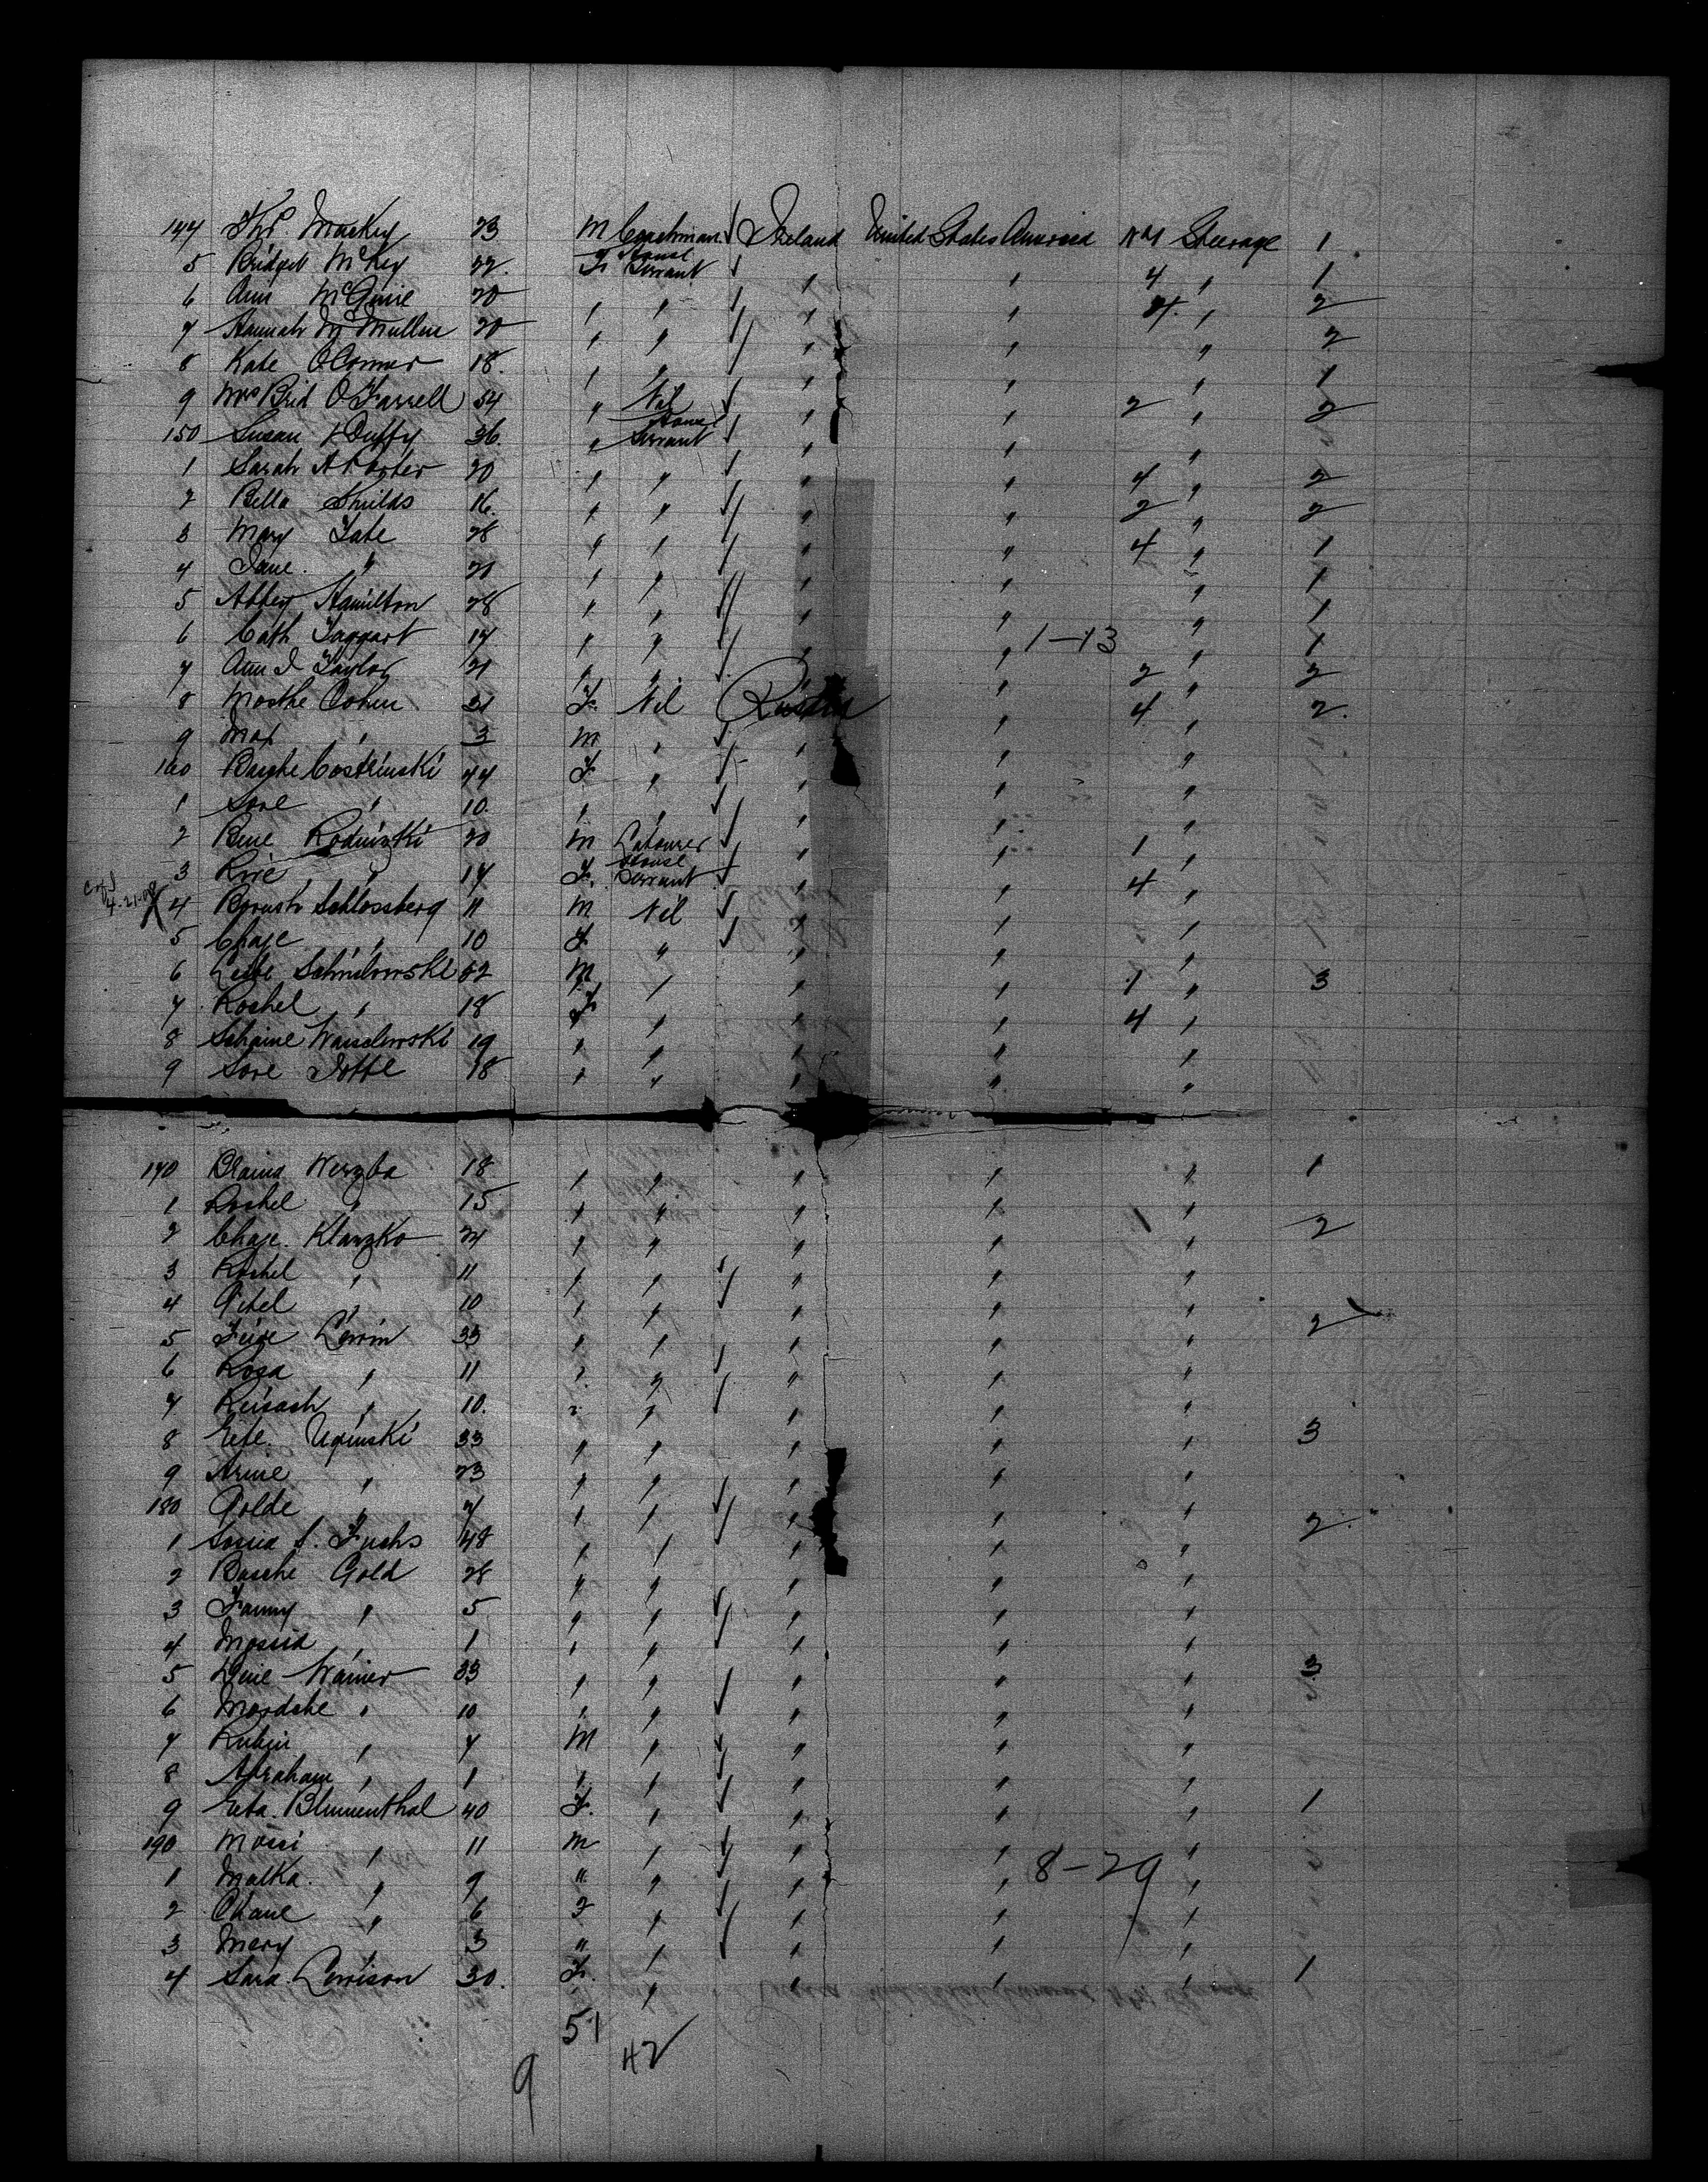 144 Thos Mackey 23 M Coachman Ireland United States America No 1 Steerage 1
5 Bridget McKey 22. F House Servant " " 4 " 1
6 Ann McGuire 20 " " " " 4. " 2
7 Hannah McMullen 20 " " " " " 2
8 Kate O'Connor 18. " " " " " 1
9 Mrs Brid O'Farrell 54 " Nil " " 2 " 2
150 Susan Duffy 36. " House Servant " " "
1 Sarah A Porter 20 " " " " 4 " 2
2 Bella Shields 16. " " " " 2 " 2
3 Mary Tate 28 " " " " 4 " 1
4 Jane " 21 " " " " " 1
5 Abbey Hamilton 28 " " " " " 1
6 Cath Taggart 17 " " " " 1-13 " 1
7 Ann J Taylor 21 " " " " 2 " 2
8 Cohen 31 F. Nil Russia " 4 " 2.
9 Max " 3 M " " " "
160 44 F " " " "
1 Sore " 10. " " " " "
2 Bene Rodninzki 20 M Labourer " " 1 "
3 " 17 F. House Servant " " 4 "
4-21-08 X 4 Schlossberg 11 M Nil " " "
5 Chaje " 10 F " " " "
6 Leibe 52 M " " " 1 " 3
7 Rochel " 18 F " " " 4 "
8 Scheine 19 " " " " "
9 Sore 18 " " " " "
170 Werzba 18 " " " " " 1
1 Rochel " 15 " " " " "
2 Chaje. Klarzko 24 " " " " " 2
3 Rochel " 11 " " " " "
4 Gitel " 10 " " " " "
5 Lewin 33 " " " " " 2
6 Rosa " 11 " " " " "
7 " 10. " " " " "
8 Uginski 33 " " " " " 3
9 " 23 " " " " "
180 Golde " 7 " " " " "
1 Fuchs 48 " " " " " 2
2 Basche Gold 28 " " " " "
3 Fanny " 5 " " " " "
4 " 1 " " " " "
5 Wainer 33 " " " " " 3
6 Mordche " 10 " " " " "
7 Rubin " 7 M " " " "
8 Abraham " 1 " " " " "
9 Blumenthal 40 F. " " " " 1
190 Mossi " 11 M " " " "
1 Malka. " 9 " " " " 8-29 "
2 Chane " 6 F " " " "
3 Mery " 3 " " " " "
4 Sara. Lewison 30. F. " " " " 1
51
42
9